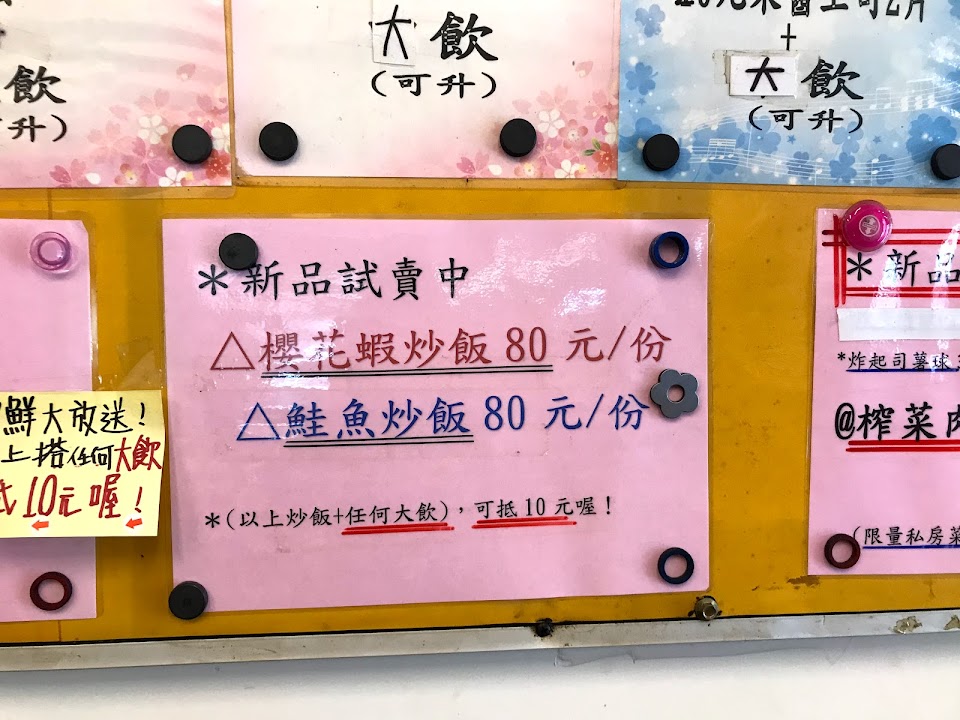 飲
可升)
大飲
(可升)
+
大飲
(可升)
*新品試賣中
△櫻花蝦炒飯80元/份
△鮭魚炒飯80元/份
*(以上炒飯+任何大飲)，可抵10元喔！
鮮大放送！
上搭任何大飲
抵10元喔！
*新品
*炸起司薯球
@榨菜肉
(限量私房菜